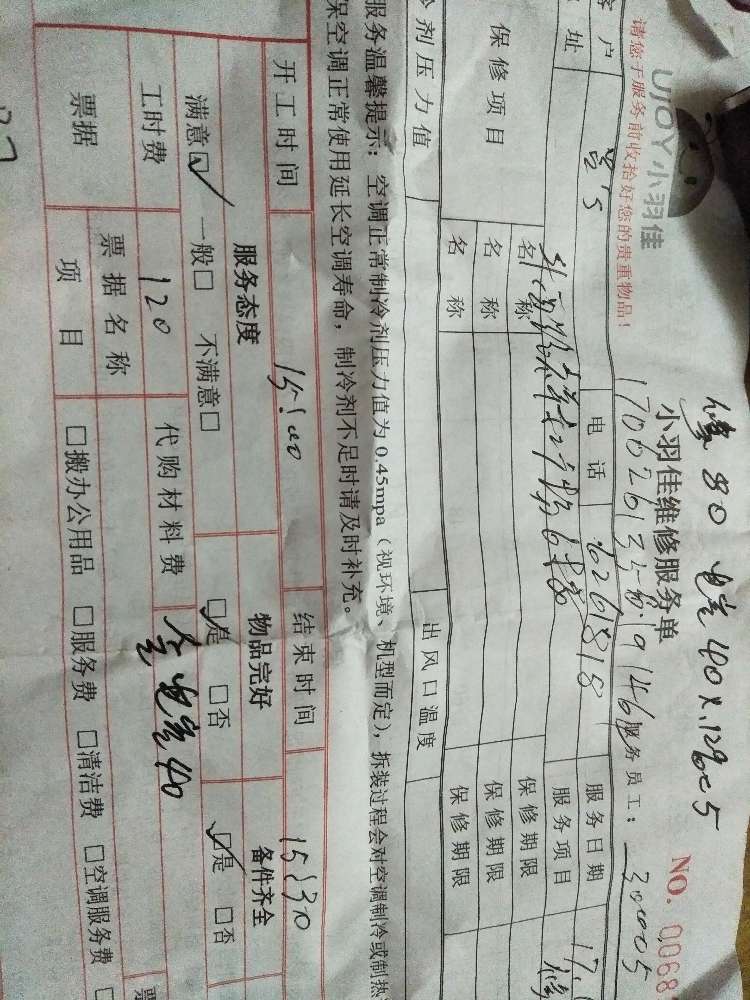 修 80 电瓷 40 x.129005
UJOY小羽佳
小羽佳维修服务单
NO. 0068
请您于服务前收拾好您的贵重物品!
服务员工: 30005
客户
电话
服务日期 17.
址
服务项目 修
保修项目
名称
保修期限
名称
保修期限
名称
保修期限
冷剂压力值
出风口温度
服务温馨提示:空调正常制冷剂压力值为0.45mpa(视环境、机型而定),拆装过程会对空调制冷或制热
保空调正常使用延长空调寿命,制冷剂不足时请及时补充。
开工时间 15:00 结束时间 15:30
服务态度 物品完好 备件齐全
满意☑ 一般□ 不满意□ ☑是 □否 ☑是 □否
工时费 120 代购材料费 40
票据 票据名称 票
项目 □搬办公用品 □服务费 □清洁费 □空调服务费 □